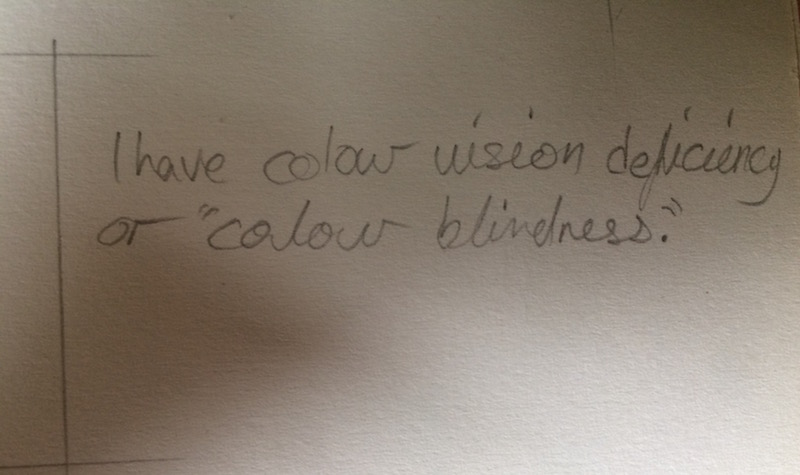 I have colour vision deficiency
or "colour blindness."